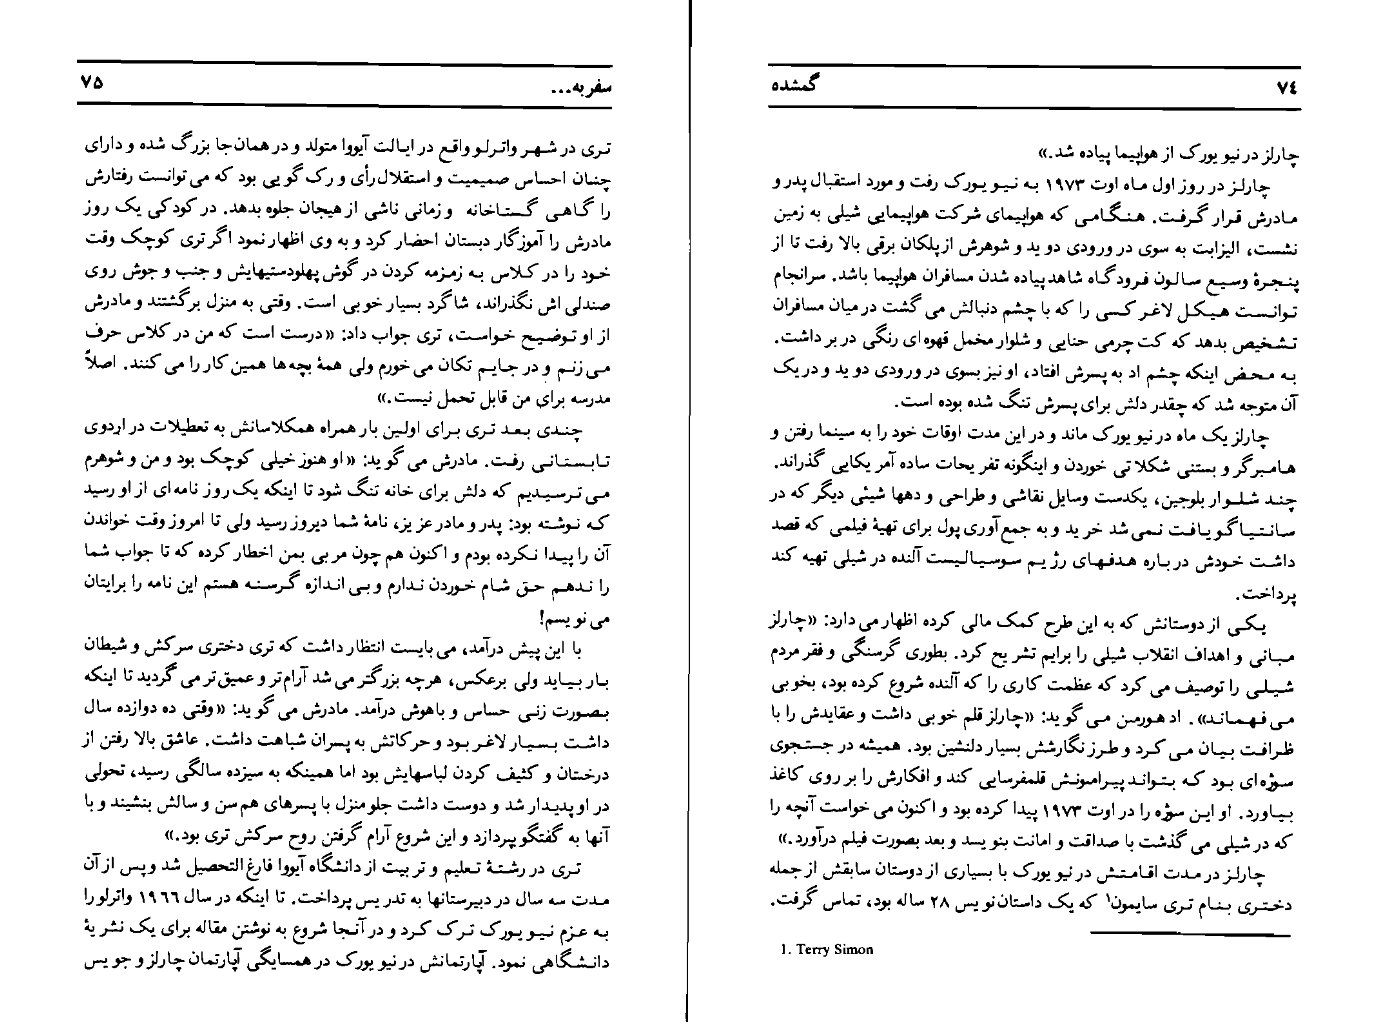 ۷٤ گمشده
چارلز در نیو یورک از هواپیما پیاده شد.»
چارلـز در روز اول مـاه اوت ۱۹۷۳ بـه نـیـو یـورک رفت و مورد استقبال پدر و
مـادرش قـرار گـرفـت. هـنـگـامـی که هواپیمای شرکت هواپیمایی شیلی به زمین
نشست، الیزابت به سوی در ورودی دو ید و شوهرش از پلکان برقی بالا رفت تا از
پـنـجـرۀ وسیـع سـالـون فـرودگـاه شاهد پیاده شدن مسافران هواپیما باشد. سرانجام
تـوانـسـت هـیـکـل لاغـر کـسـی را که با چشم دنبالش می گشت در میان مسافران
تـشـخیص بدهد که کت چرمی حنایی و شلوار مخمل قهوه ای رنگی در بر داشت.
بـه مـحـض اینکه چشم اد به پسرش افتاد، او نیز بسوی در ورودی دو ید و در یک
آن متوجه شد که چقدر دلش برای پسرش تنگ شده بوده است.
چارلز یک ماه در نیو یورک ماند و در این مدت اوقات خود را به سینما رفتن و
هامـبـرگر و بستنی شکلاتی خوردن و اینگونه تفر یحات ساده آمر یکایی گذراند.
چنـد شلـوار بلوجین، یکدست وسایل نقاشی و طراحی و دهها شیئی دیگر که در
سـانـتـیـاگـو یـافـت نـمـی شد خر ید و به جمع آوری پول برای تهیۀ فیلمی که قصد
داشـت خـودش در بـاره هـدفـهـای رژ یـم سـوسـیـالـیسـت آلنده در شیلی تهیه کند
پرداخت.
یـکـی از دوستانش که به این طرح کمک مالی کرده اظهار می دارد: «چارلز
مـبـانی و اهداف انقلاب شیلی را برایم تشر یح کرد. بطوری گرسنگی و فقر مردم
شیلـی را توصیف می کرد که عظمت کاری را که آلنده شروع کرده بود، بخو بی
مـی فـهـمـانـد». اد هـورمـن مـی گـو ید: «چارلز قلم خو بی داشت و عقایدش را با
ظـرافـت بـیـان مـی کـرد و طـرز نگارشش بسیار دلنشین بود. همیشه در جستجوی
سـوژه ای بـود کـه بـتـوانـد پیـرامـونـش قلمفرسایی کند و افکارش را بر روی کاغذ
بـیـاورد. او ایـن سـوژه را در اوت ۱۹۷۳ پیدا کرده بود و اکنون می خواست آنچه را
که در شیلی می گذشت با صداقت و امانت بنو یسد و بعد بصورت فیلم درآورد.»
چارلـز در مـدت اقـامـتـش در نیو یورک با بسیاری از دوستان سابقش از جمله
دخـتـری بـنـام تری سایمون۱ که یک داستان نو یس ۲۸ ساله بود، تماس گرفت.
1. Terry Simon
سفر به... ۷۵
تـری در شـهـر واتـرلـو واقـع در ایـالت آیووا متولد و در همان جا بزرگ شده و دارای
چنـان احساس صمیمیت و استقلال رأی و رک گو یی بود که می توانست رفتارش
را گـاهـی گـسـتـاخانه و زمانی ناشی از هیجان جلوه بدهد. در کودکی یک روز
مادرش را آموزگار دبستان احضار کرد و به وی اظهار نمود اگر تری کوچک وقت
خـود را در کـلاس بـه زمـزمه کردن در گوش پهلودستیهایش و جنب و جوش روی
صندلی اش نگذراند، شاگرد بسیار خو بی است. وقتی به منزل برگشتند و مادرش
از او تـوضیـح خـواسـت، تری جواب داد: «درست است که من در کلاس حرف
مـی زنـم و در جـایـم تکان می خورم ولی همۀ بچه ها همین کار را می کنند. اصلاً
مدرسه برای من قابل تحمل نیست.»
چـنـدی بـعـد تری بـرای اولین بار همراه همکلاسانش به تعطیلات در اردوی
تـابـسـتـانـی رفـت. مادرش می گو ید: «او هنوز خیلی کوچک بود و من و شوهرم
مـی تـرسـیـدیـم که دلش برای خانه تنگ شود تا اینکه یک روز نامه ای از او رسید
کـه نـوشـته بود: پدر و مادر عز یز، نامۀ شما دیروز رسید ولی تا امروز وقت خواندن
آن را پیـدا نـکرده بودم و اکنون هم چون مر بی بمن اخطار کرده که تا جواب شما
را نـدهـم حـق شـام خـوردن نـدارم و بـی انـدازه گـرسـنـه هستم این نامه را برایتان
می نو یسم!
با این پیش درآمد، می بایست انتظار داشت که تری دختری سرکش و شیطان
بـار بـیـاید ولی برعکس، هرچه بزرگتر می شد آرام تر و عمیق تر می گردید تا اینکه
بـصـورت زنـی حساس و باهوش درآمد. مادرش می گو ید: «وقتی ده دوازده سال
داشـت بـسـیـار لاغـر بـود و حرکاتش به پسران شباهت داشت. عاشق بالا رفتن از
درختان و کثیف کردن لباسهایش بود اما همینکه به سیزده سالگی رسید، تحولی
در او پدیـدار شد و دوست داشت جلو منزل با پسرهای هم سن و سالش بنشیند و با
آنها به گفتگو بپردازد و این شروع آرام گرفتن روح سرکش تری بود.»
تری در رشتـۀ تـعلیم و تر بیت از دانشگاه آیووا فارغ التحصیل شد و پس از آن
مـدت سه سال در دبیرستانها به تدر یس پرداخت. تا اینکه در سال ۱۹٦٦ واترلو را
بـه عـزم نـیـو یـورک تـرک کـرد و در آنـجا شروع به نوشتن مقاله برای یک نشر یۀ
دانـشـگـاهی نمود. آپارتمانش در نیو یورک در همسایگی آپارتمان چارلز و جو یس